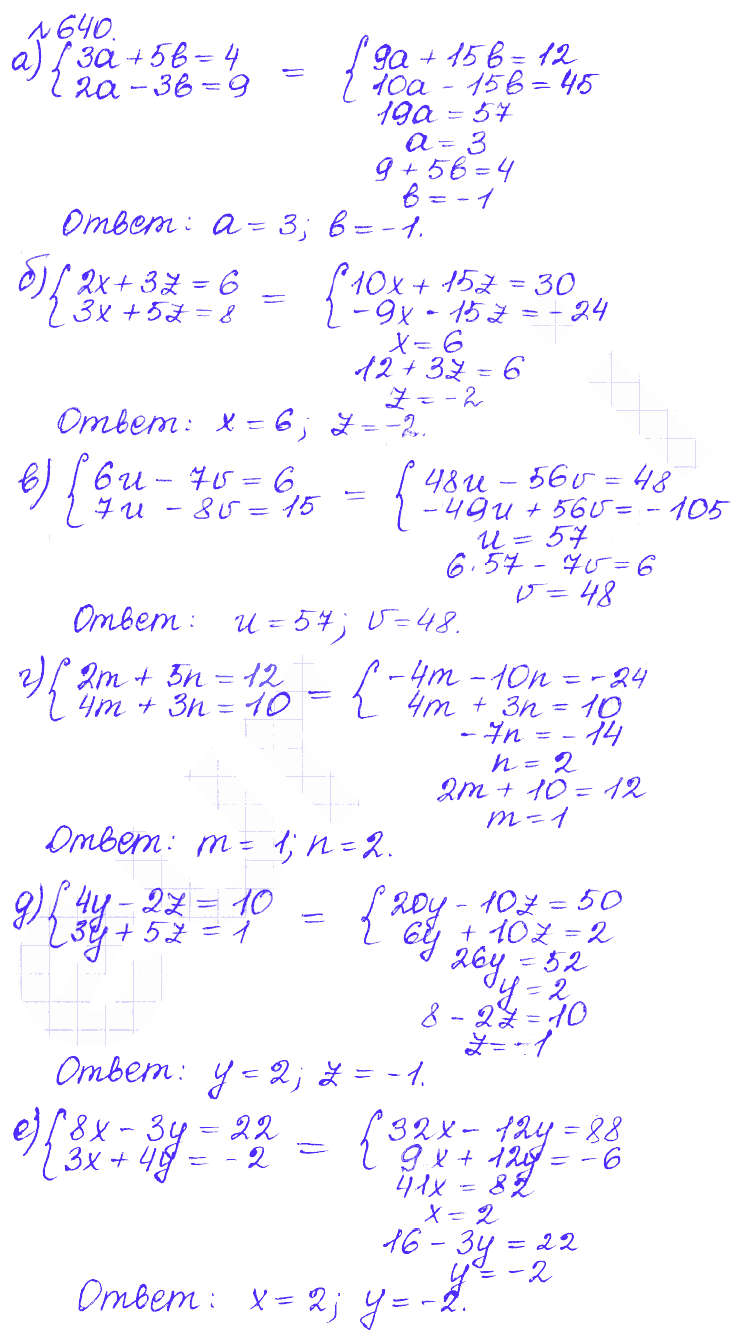 №640.
а) { 3a + 5b = 4 = { 9a + 15b = 12
2a - 3b = 9 10a - 15b = 45
19a = 57
a = 3
9 + 5b = 4
b = -1
Ответ: a = 3; b = -1.
б) { 2x + 3z = 6 = { 10x + 15z = 30
3x + 5z = 8 -9x - 15z = -24
x = 6
12 + 3z = 6
z = -2
Ответ: x = 6; z = -2.
в) { 6u - 7v = 6 = { 48u - 56v = 48
7u - 8v = 15 -49u + 56v = -105
u = 57
6·57 - 7v = 6
v = 48
Ответ: u = 57; v = 48.
г) { 2m + 5n = 12 = { -4m - 10n = -24
4m + 3n = 10 4m + 3n = 10
-7n = -14
n = 2
2m + 10 = 12
m = 1
Ответ: m = 1; n = 2.
д) { 4y - 2z = 10 = { 20y - 10z = 50
3y + 5z = 1 6y + 10z = 2
26y = 52
y = 2
8 - 2z = 10
z = -1
Ответ: y = 2; z = -1.
е) { 8x - 3y = 22 = { 32x - 12y = 88
3x + 4y = -2 9x + 12y = -6
41x = 82
x = 2
16 - 3y = 22
y = -2
Ответ: x = 2; y = -2.